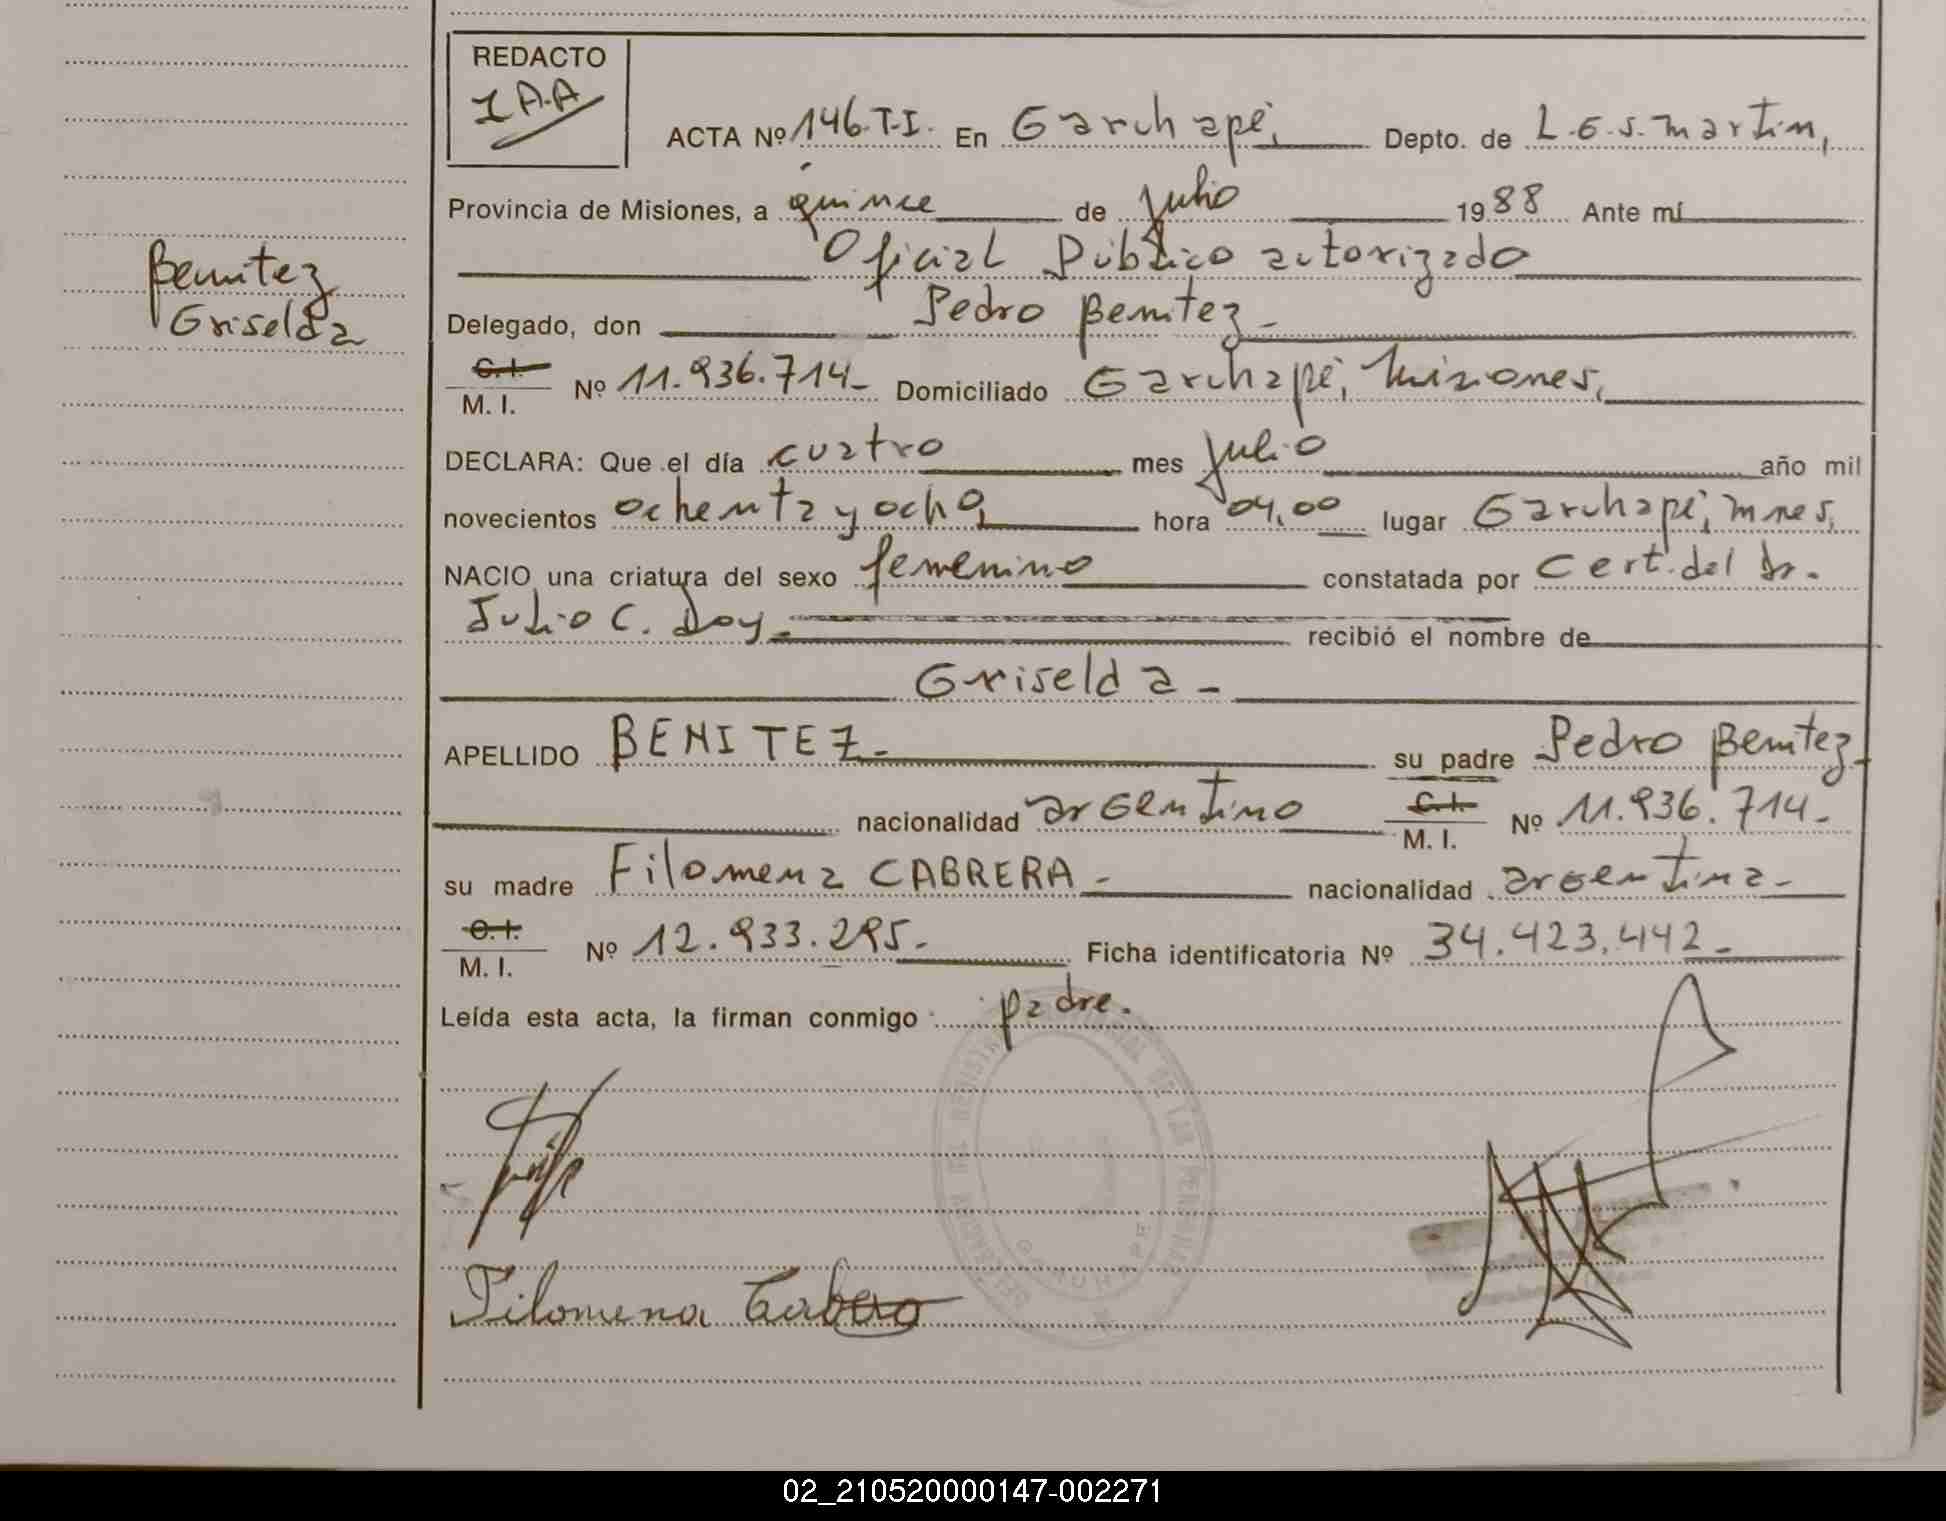 REDACTO
I A.A
ACTA Nº 146.T.I. En Garuhapé, Depto. de L.G.S. Martin,
Provincia de Misiones, a quince de Julio 1988 Ante mí
Oficial Público autorizado
Benitez
Griselda
Delegado, don Pedro Benitez-
C.I. M. I. Nº 11.936.714- Domiciliado Garuhapé, Misiones,
DECLARA: Que el día cuatro mes Julio año mil
novecientos ochenta y ocho, hora 04,00 lugar Garuhapé, Mnes,
NACIO una criatura del sexo femenino constatada por Cert. del Dr.
Julio C. Doy- recibió el nombre de
Griselda-
APELLIDO BENITEZ- su padre Pedro Benitez-
nacionalidad argentino C.I. M. I. Nº 11.936.714-
su madre Filomena CABRERA- nacionalidad argentina-
C.I. M. I. Nº 12.933.295- Ficha identificatoria Nº 34.423.442-
Leída esta acta, la firman conmigo padre.
GARUHAPE
Filomena
02_210520000147-002271